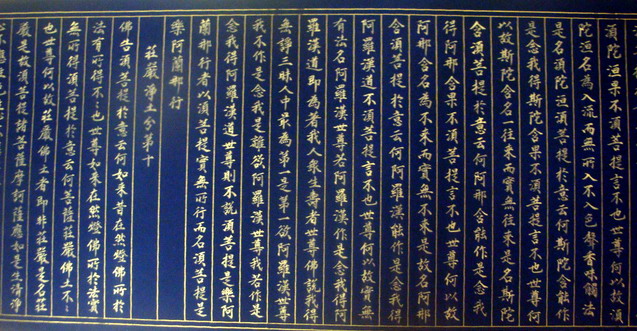 須陀洹果不須菩提言不也世尊何以故須
陀洹名為入流而無所入不入色聲香味觸法
是名須陀洹須菩提於意云何斯陀含能作
是念我得斯陀含果不須菩提言不也世尊何
以故斯陀含名一往来而實無往来是名斯陀
含須菩提於意云何阿那含能作是念我
得阿那含果不須菩提言不也世尊何以故
阿那含名為不来而實無不来是故名阿那
含須菩提於意云何阿羅漢能作是念我得
阿羅漢道不須菩提言不也世尊何以故實無
有法名阿羅漢世尊若阿羅漢作是念我得阿
羅漢道即為著我人衆生壽者世尊佛說我得
無諍三昧人中最為第一是第一欲阿羅漢世尊
我不作是念我是離欲阿羅漢世尊我若作是
念我得阿羅漢道世尊則不說須菩提是樂阿
蘭那行者以須菩提實無所行而名須菩提是
樂阿蘭那行
莊嚴淨土分第十
佛告須菩提於意云何如来昔在然燈佛所於
法有所得不〻也世尊如来在然燈佛所於法實
無所得須菩提於意云何菩薩莊嚴佛土不〻
也世尊何以故莊嚴佛土者即非莊嚴是名莊
嚴是故須菩提諸菩薩摩訶薩應如是生清淨